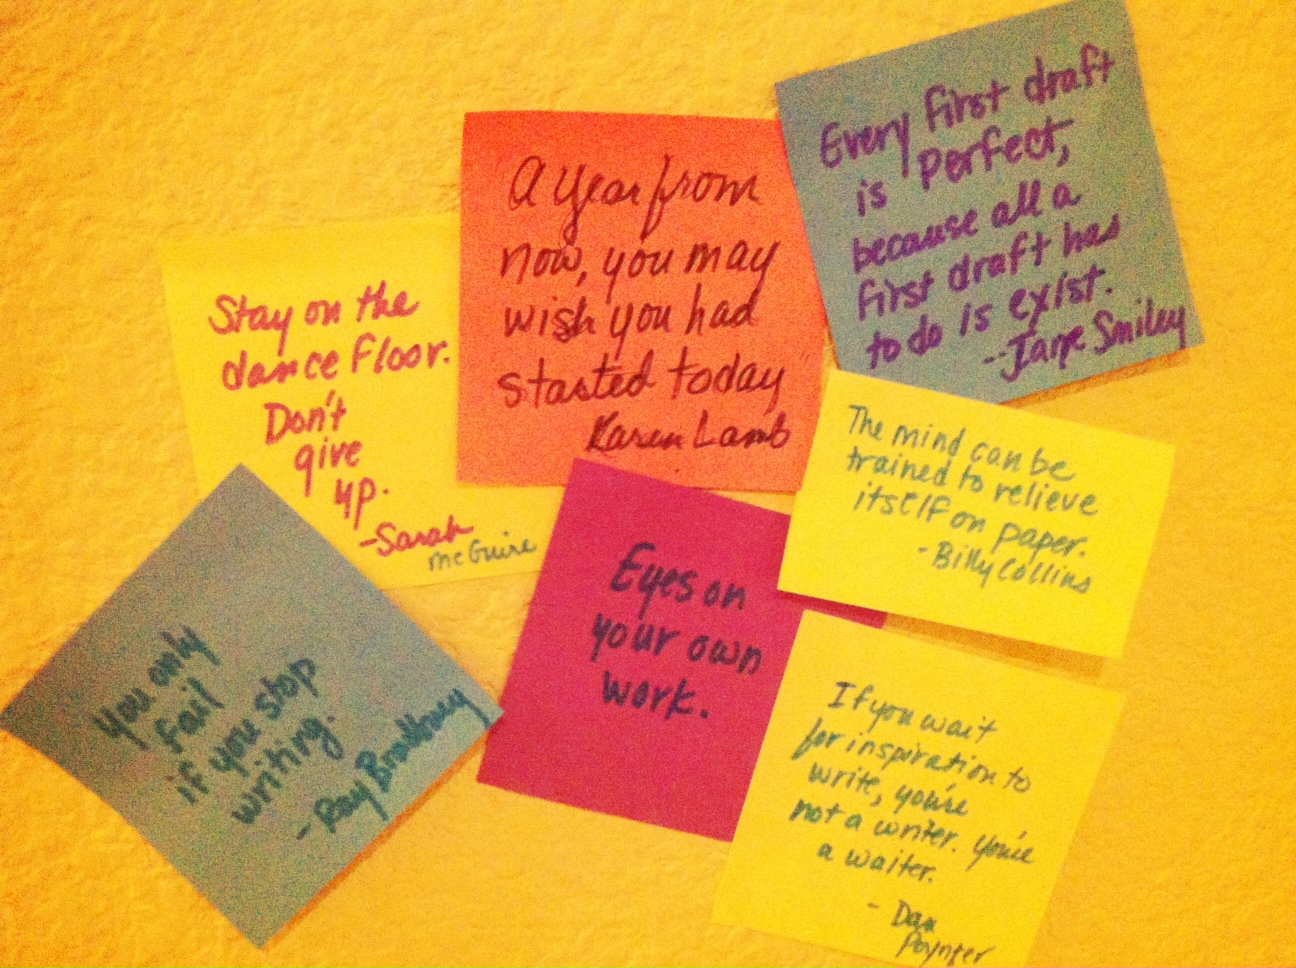 Every first draft
is perfect,
because all a
first draft has
to do is exist.
--Jane Smiley
A year from
now, you may
wish you had
started today
Karen Lamb
Stay on the
dance floor.
Don't
give
up.
-Sarah
McGuire
The mind can be
trained to relieve
itself on paper.
-Billy Collins
Eyes on
your own
work.
You only
fail
if you stop
writing.
-Ray Bradbury
If you wait
for inspiration to
write, you're
not a writer. You're
a waiter.
- Dan
Poynter